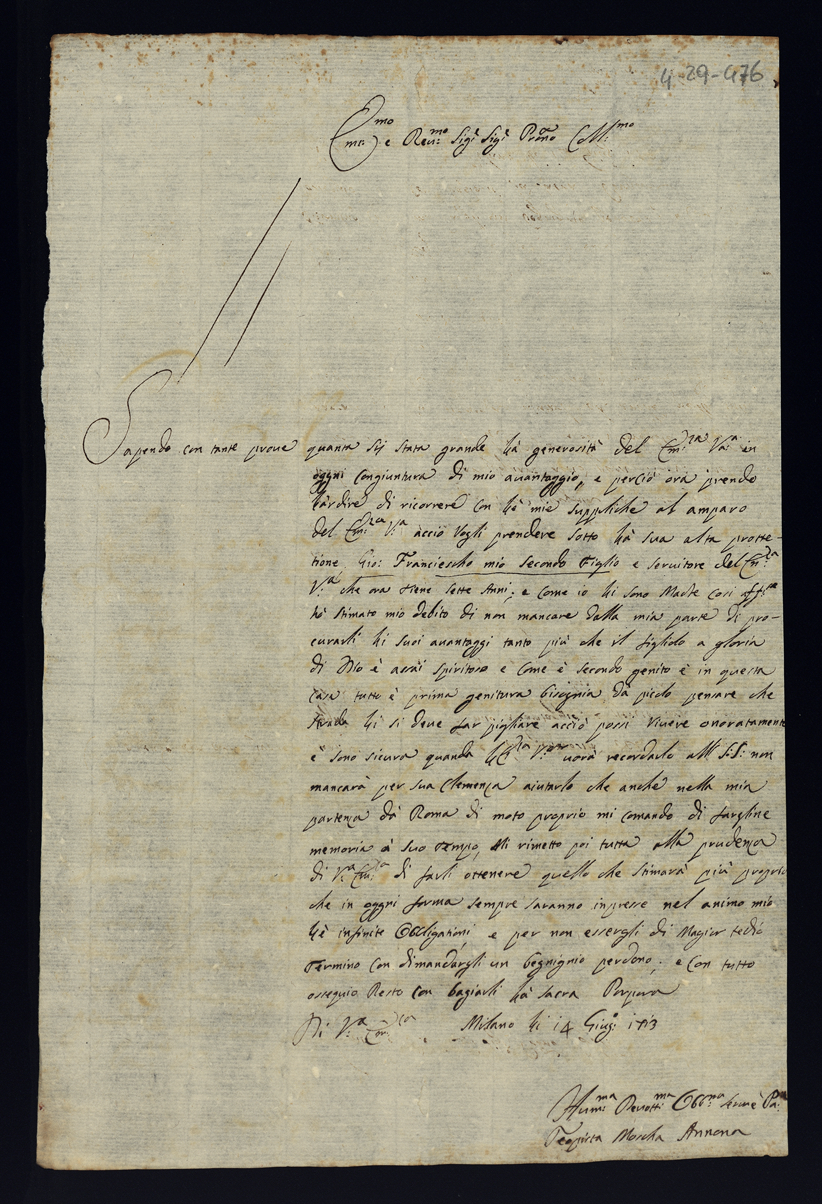 4-29-476
Emo
(mo) e Reu:mo Sig:e Sig:e Prone Coll:mo
Sapendo con tante proue quanta sij stata grande là generosità del Em:za Va:a in
oggni congiuntura di mio auantaggio, e perciò ora prendo
l'ardire di ricorrere con lè mie suppliche al amparo
del Em:za V:a acciò Vogli prendere sotto là sua alta protte-
tione Gio: Franciescho mio secondo Figlio e seruitore del Em:za
V:a che ora tiene sette Anni; e come io li sono Madre così
hò stimato mio debito di non mancare dalla mia parte di pro-
curarli li suoi auantaggi tanto più che il figliolo a gloria
di Dio è assai spiritoso e come è secondo genito è in questa
casa tutto è prima genitura bisognia dà picolo pensare che
strada li si deue far pigliare acciò possi viuere onoratamente
è sono sicura quando V:a uorà recordarlo all S:S: non
mancarà per sua clemenza aiutarlo che anche nella mia
partenza dà Roma di moto proprio mi comando di fargline
memoria à suo tempo, Mi rimetto poi tutta alla prudenza
di V:a Em:a di farli ottenere quello che stimarà più proprio
che in oggni forma sempre saranno inpresse nel animo mio
lè infinite Obligationi e per non essergli di Magior tedio
termino con dimandargli un begnignio perdono; e con tutto
ossequio Resto con bagiarli là sacra Porpora
Di V:a Em:za Milano li 14 Giug:o 1713
Hum:ma Deuott:ma Obb:ma
Teopista Moscha Annona